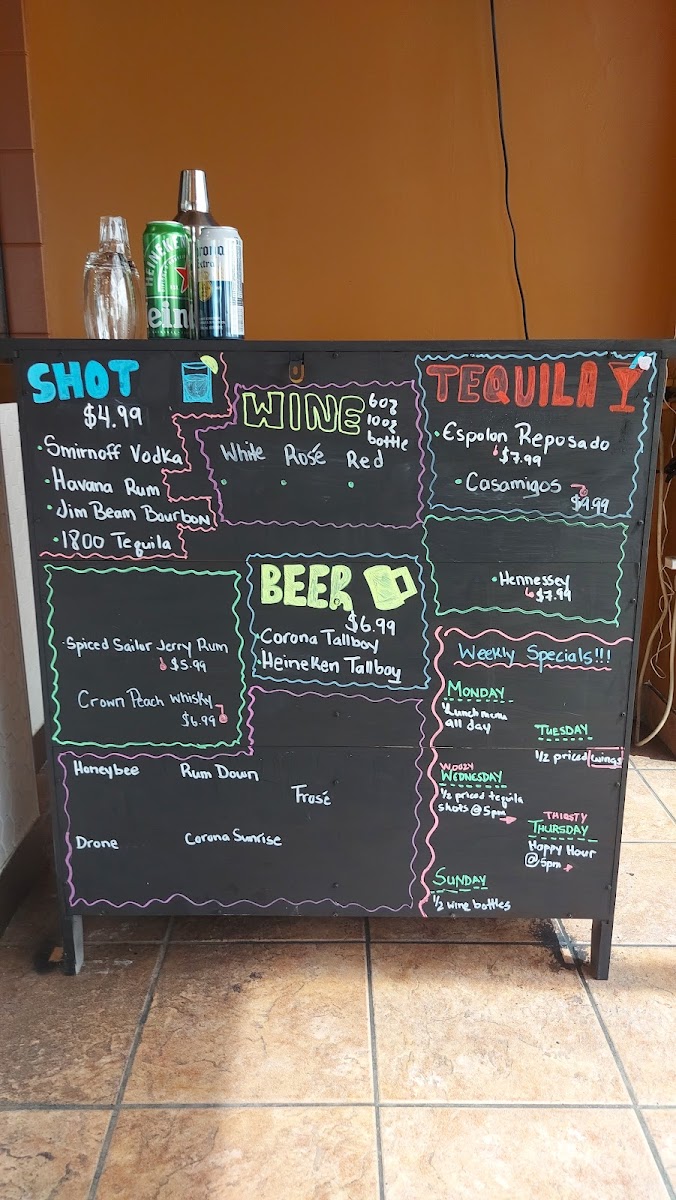 HEINEKEN
Hein
Corona
Extra
SHOT
$4.99
• Smirnoff Vodka
• Havana Rum
• Jim Beam Bourbon
• 1800 Tequila
WINE
6oz
10oz
bottle
White Rosé Red
TEQUILA
• Espolon Reposado
$7.99
• Casamigos
$9.99
• Hennessey
$7.99
BEER
$6.99
• Corona Tallboy
• Heineken Tallboy
• Spiced Sailor Jerry Rum
$5.99
Crown Peach Whisky
$6.99
Honeybee Rum Down
Frosé
Drone Corona Sunrise
Weekly Specials!!!
MONDAY
½ lunch menu
all day
TUESDAY
½ priced wings
WOOZY
WEDNESDAY
½ priced tequila
shots @ 5pm
THIRSTY
THURSDAY
Happy Hour
@ 5pm
SUNDAY
½ wine bottles